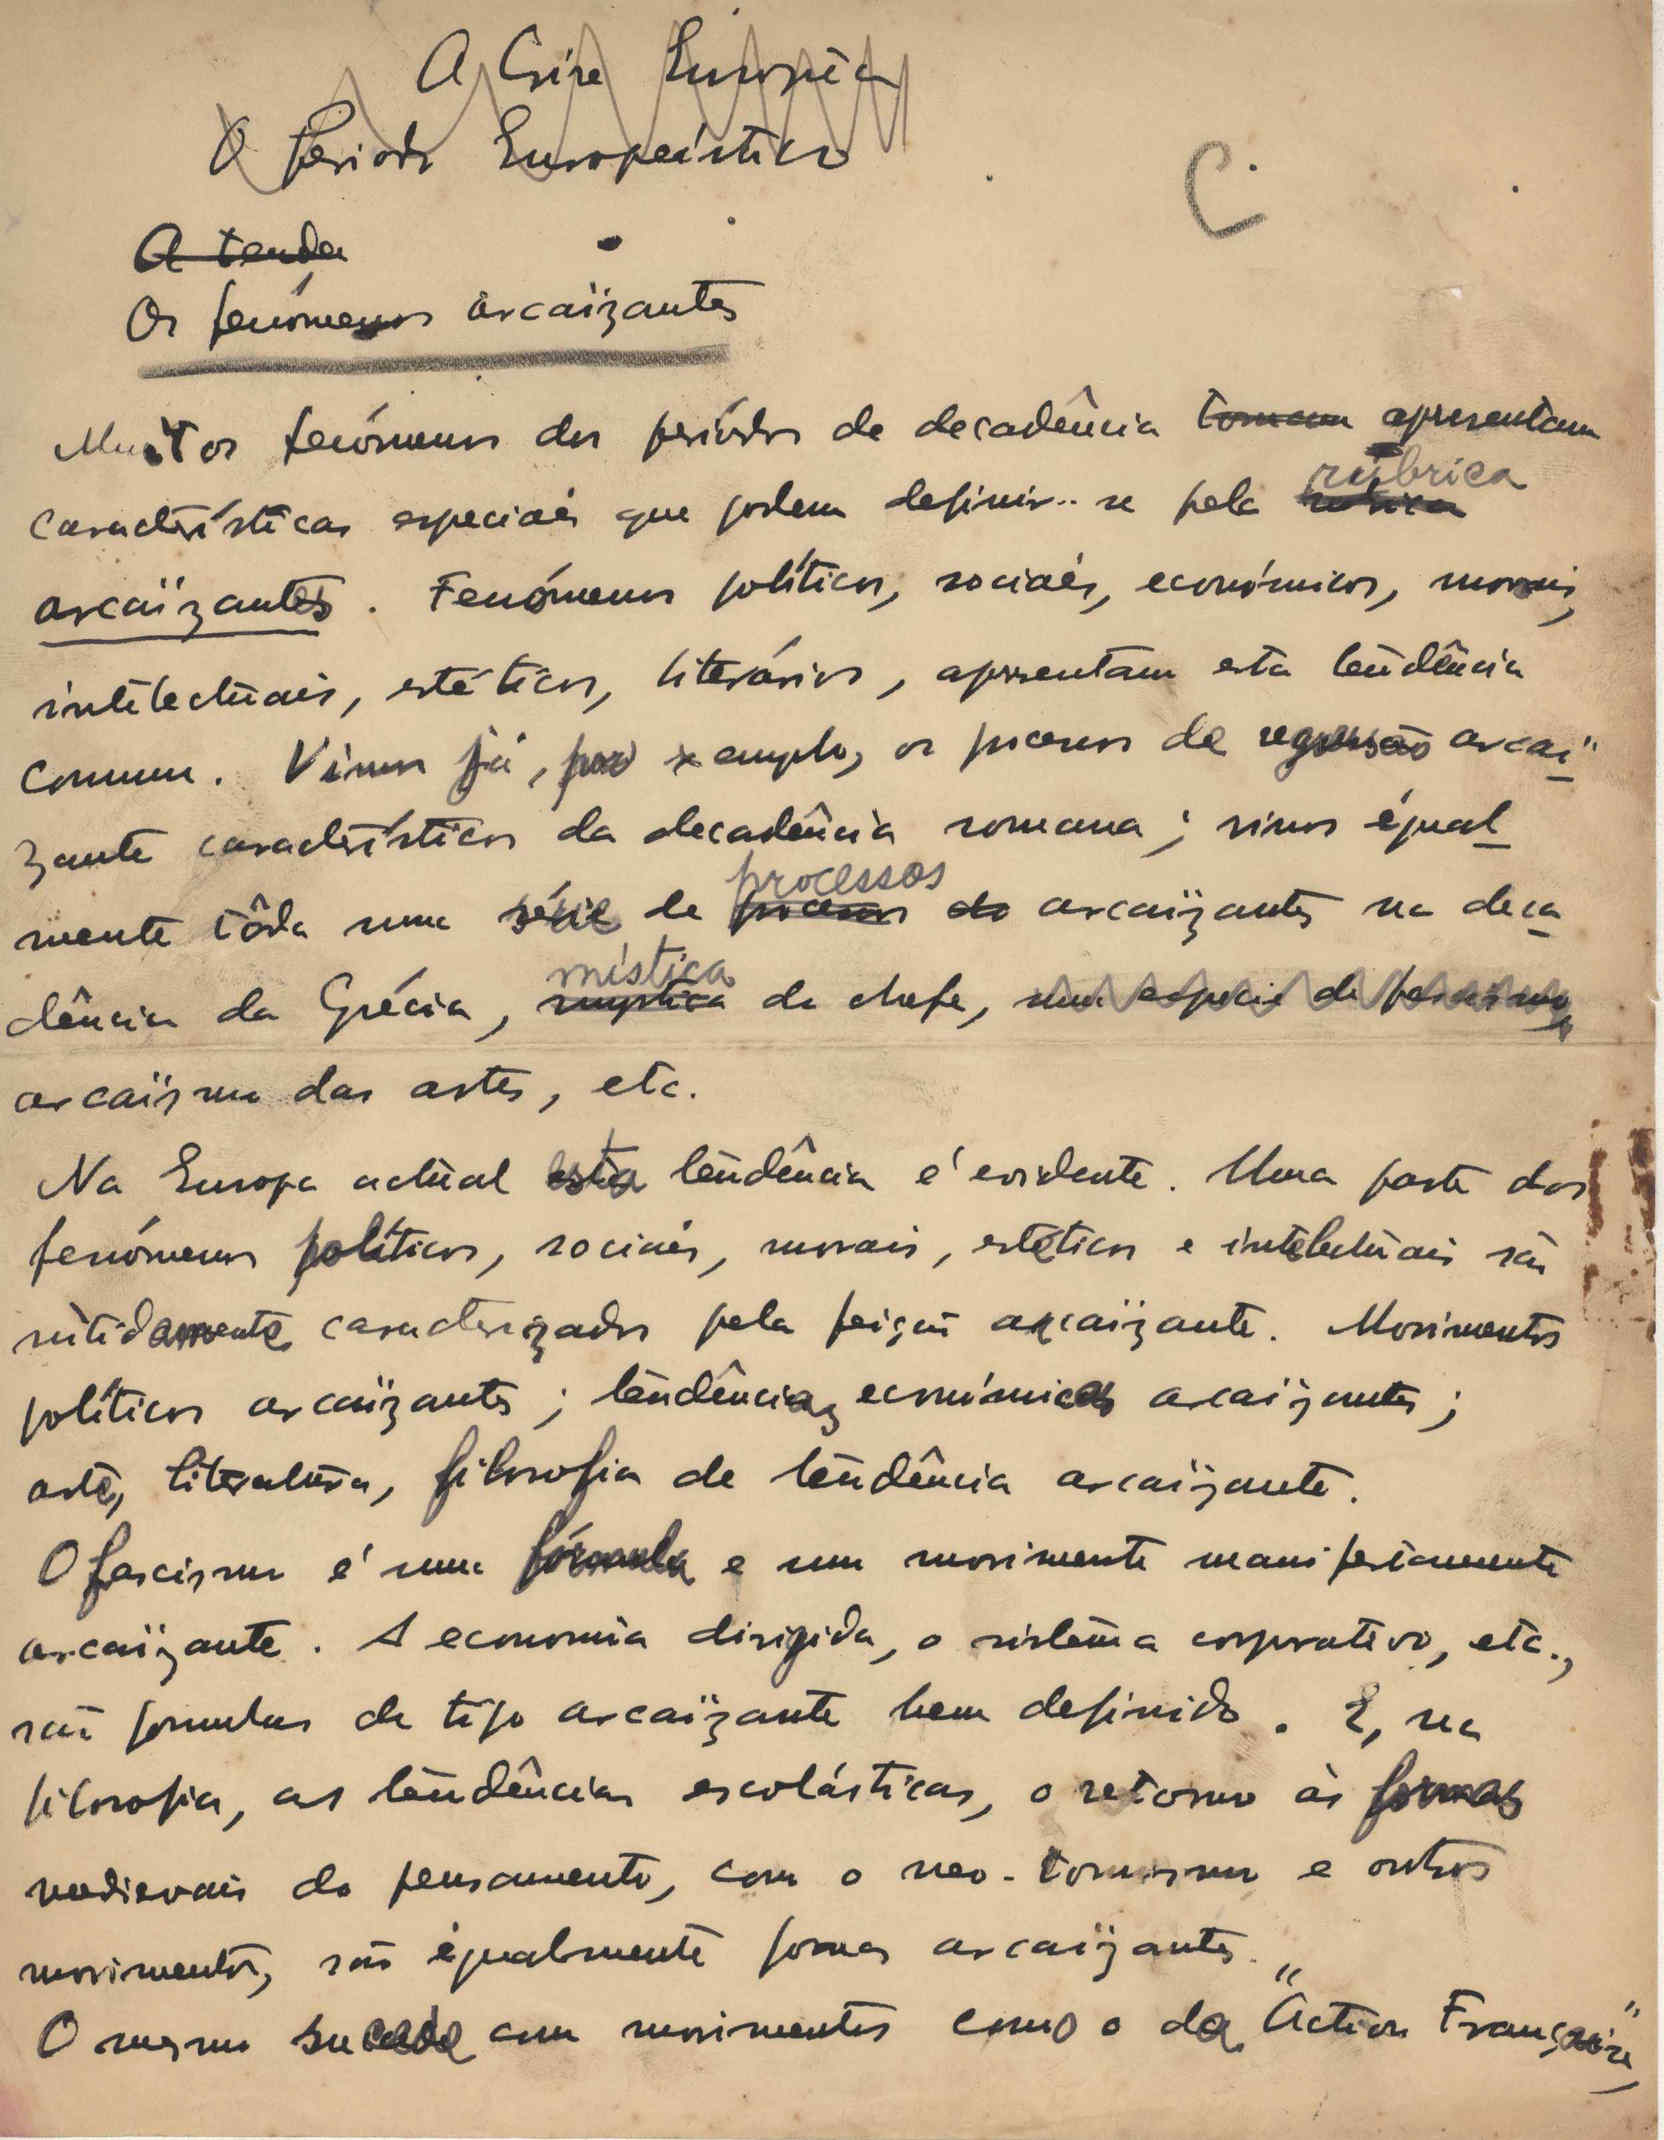 A Crise Europeia
O Período Europeístico
C.
A tenda
Os fenómenos arcaïzantes
Muitos fenómenos dos períodos de decadência tomam apresentam
características especiais que podem definir-se pela rubrica rúbrica
arcaïzantes. Fenómenos políticos, sociais, económicos, morais,
intelectuais, estéticos, literários, apresentam esta tendência
comum. Vimos já, por exemplo, os processos de regressão arcaï-
zante característicos da decadência romana; vimos igual-
mente tôda uma série de processos processos do arcaïzantes na deca-
dência da Grécia, mystica mística do chefe, uma espécie de fascismo,
arcaïsmo das artes, etc.
Na Europa actual esta tendência é evidente. Uma parte dos
fenómenos políticos, sociais, morais, estéticos e intelectuais são
nìtidamente caracterizados pela feição arcaïzante. Movimentos
políticos arcaïzantes; tendências económicas arcaïzantes;
arte, literatura, filosofia de tendência arcaïzante.
O fascismo é uma fórmula e um movimento manifestamente
arcaïzante. A economia dirigida, o sistema corporativo, etc.,
são formulas de tipo arcaïzante bem definido. E, na
filosofia, as tendências escolásticas, o retorno às formas
medievais do pensamento, com o neo-tomismo e outros
movimentos, são igualmente formas arcaïzantes.
O mesmo sucede com movimentos como o da "Action Française",